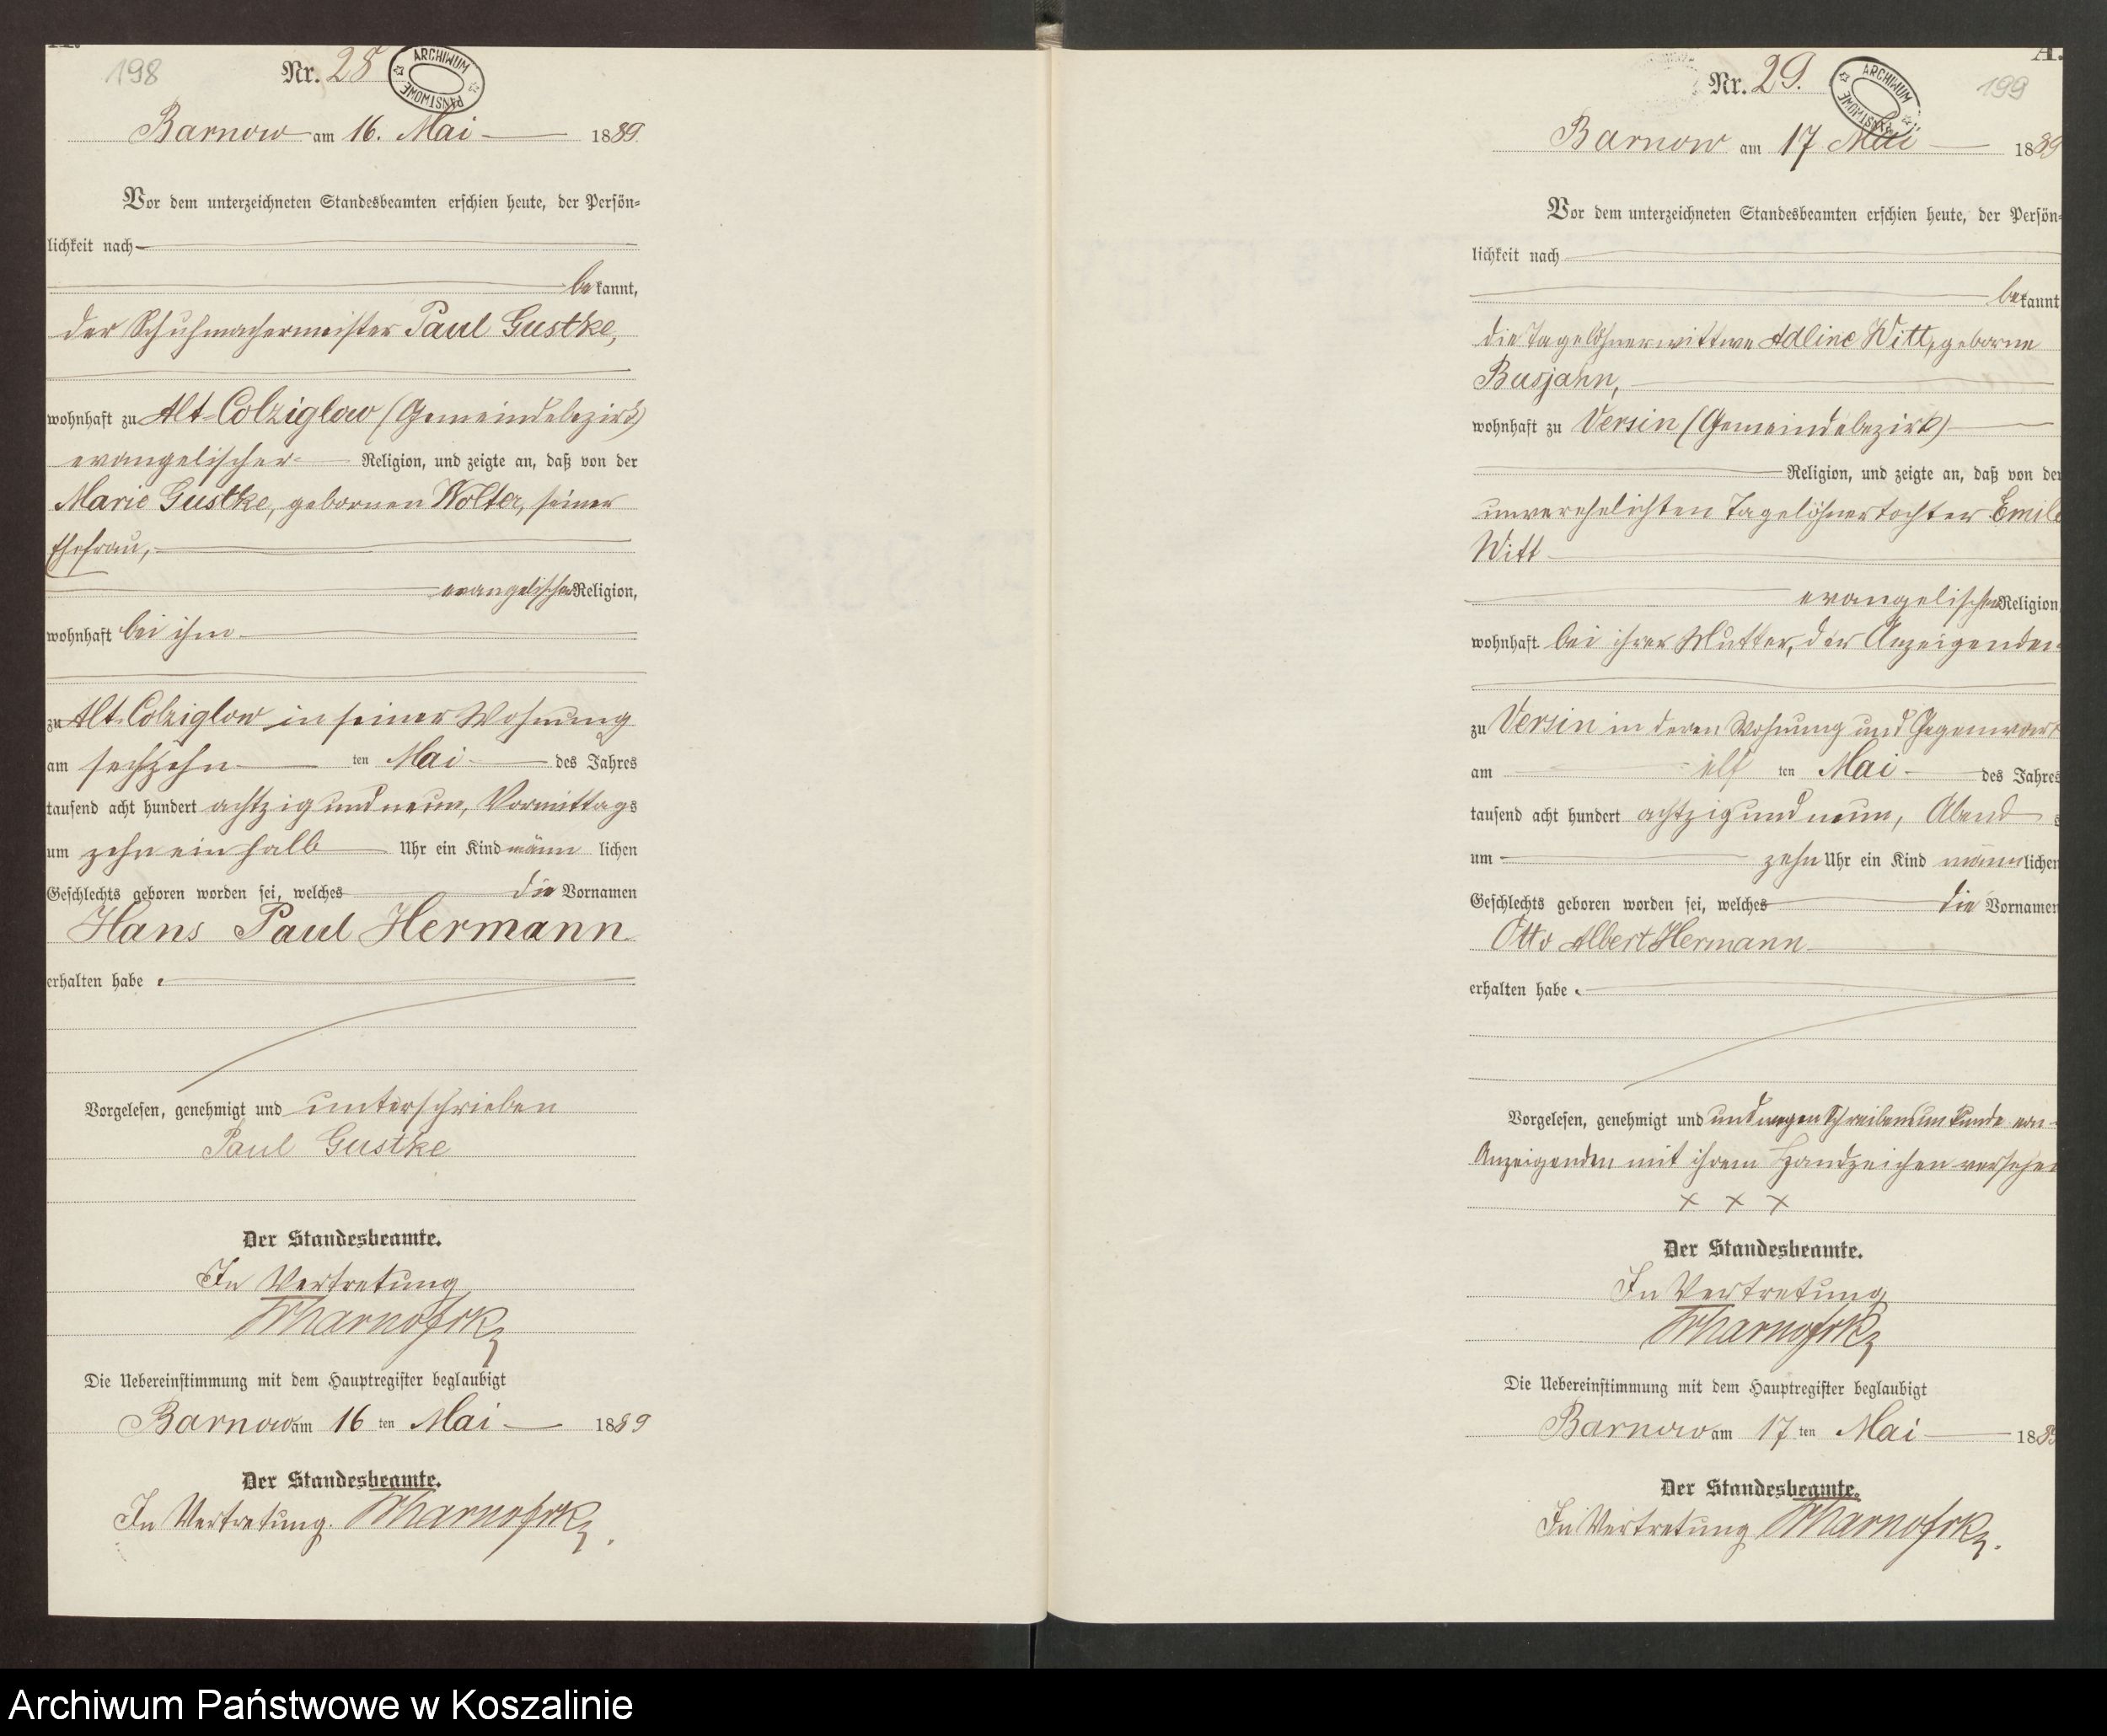 A.
198
Nr. 28
ARCHIWUM PAŃSTWOWE
Barnow am 16. Mai 1889.
Vor dem unterzeichneten Standesbeamten erschien heute, der Persön-
lichkeit nach
bekannt,
der Schuhmachermeister Paul Gustke,
wohnhaft zu Alt-Colziglow (Gemeindebezirk)
evangelischer Religion, und zeigte an, daß von der
Marie Gustke, gebornen Wolter, seiner
Ehefrau,
evangelischer Religion,
wohnhaft bei ihm
zu Alt-Colziglow in seiner Wohnung
am sechzehn ten Mai des Jahres
tausend acht hundert achtzig und neun, Vormittags
um zehn ein halb Uhr ein Kind männ lichen
Geschlechts geboren worden sei, welches die Vornamen
Hans Paul Hermann
erhalten habe.
Vorgelesen, genehmigt und unterschrieben
Paul Gustke
Der Standesbeamte.
In Vertretung
Die Uebereinstimmung mit dem Hauptregister beglaubigt
Barnow am 16 ten Mai 1889
Der Standesbeamte.
In Vertretung.
A.
199
Nr. 29.
ARCHIWUM PAŃSTWOWE
Barnow am 17 Mai 1889
Vor dem unterzeichneten Standesbeamten erschien heute, der Persön-
lichkeit nach
bekannt
die Tagelöhnerwittwe Adline Witt, geborne
Busjahn,
wohnhaft zu Versin (Gemeindebezirk)
Religion, und zeigte an, daß von der
unverehelichten Tagelöhnertochter Emile
Witt
evangelischer Religion,
wohnhaft bei ihrer Mutter, der Anzeigenden
zu Versin in deren Wohnung und Gegenwart
am elf ten Mai des Jahres
tausend acht hundert achtzig und neun, Abend s
um zehn Uhr ein Kind männlichen
Geschlechts geboren worden sei, welches die Vornamen
Otto Albert Hermann
erhalten habe.
Vorgelesen, genehmigt und und wegen Schreibensunkunde von
Anzeigenden mit ihrem Handzeichen versehen
x x x
Der Standesbeamte.
In Vertretung
Die Uebereinstimmung mit dem Hauptregister beglaubigt
Barnow am 17 ten Mai 1889
Der Standesbeamte.
In Vertretung
Archiwum Państwowe w Koszalinie